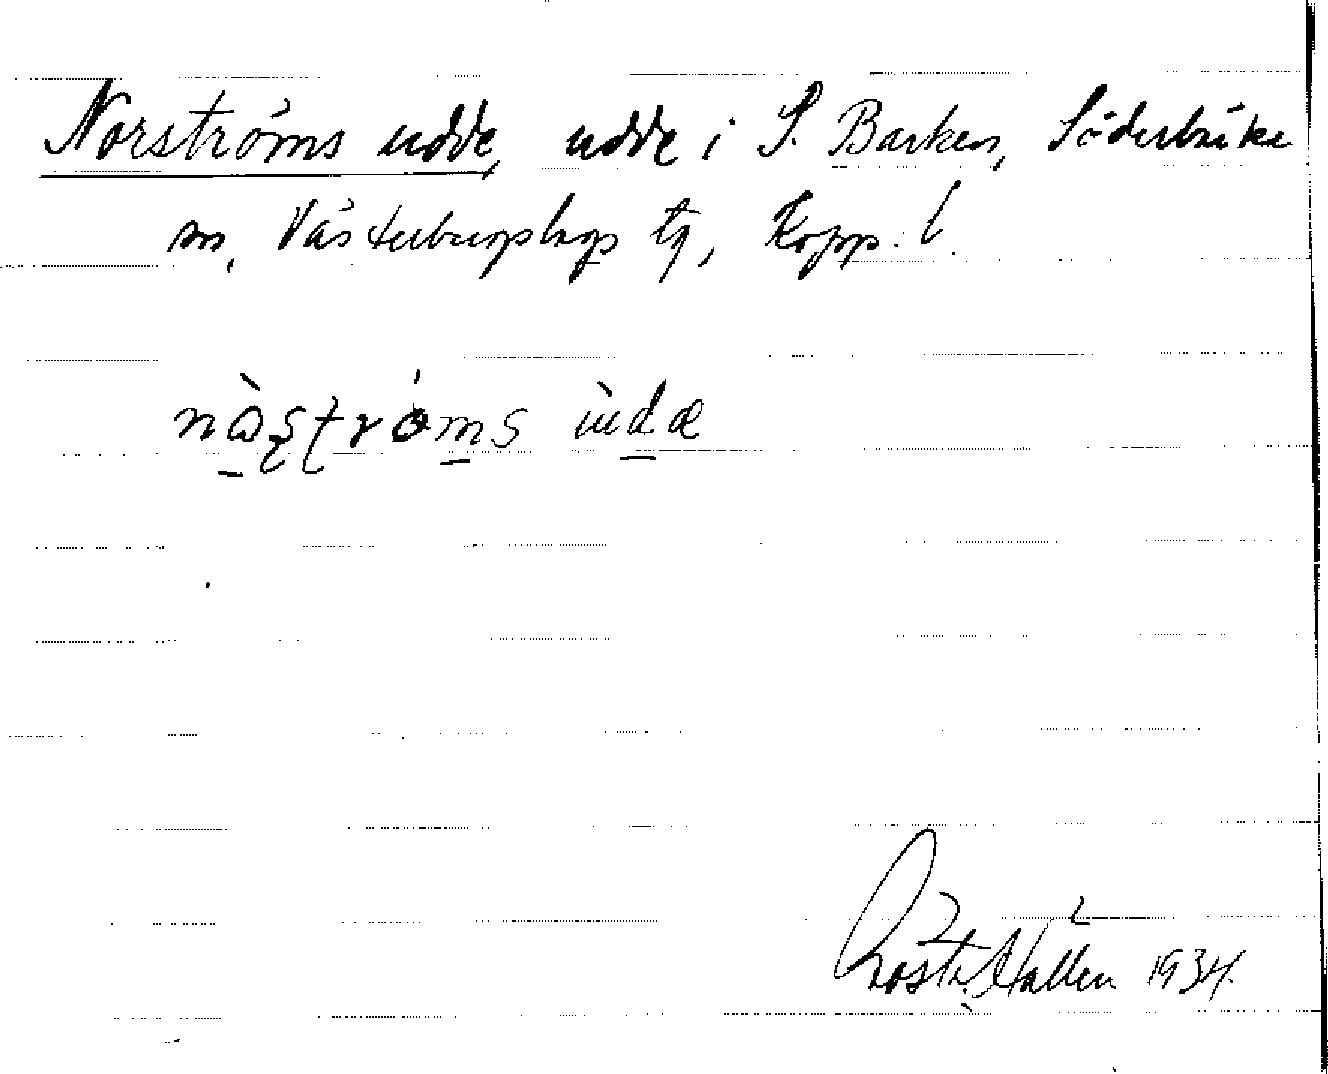 Norströms udde, udde i S. Barken, Söderbärke
sn, Västerbergslags tg, Kopp. l.
nòʂʈrȯms ùdæ
1934.